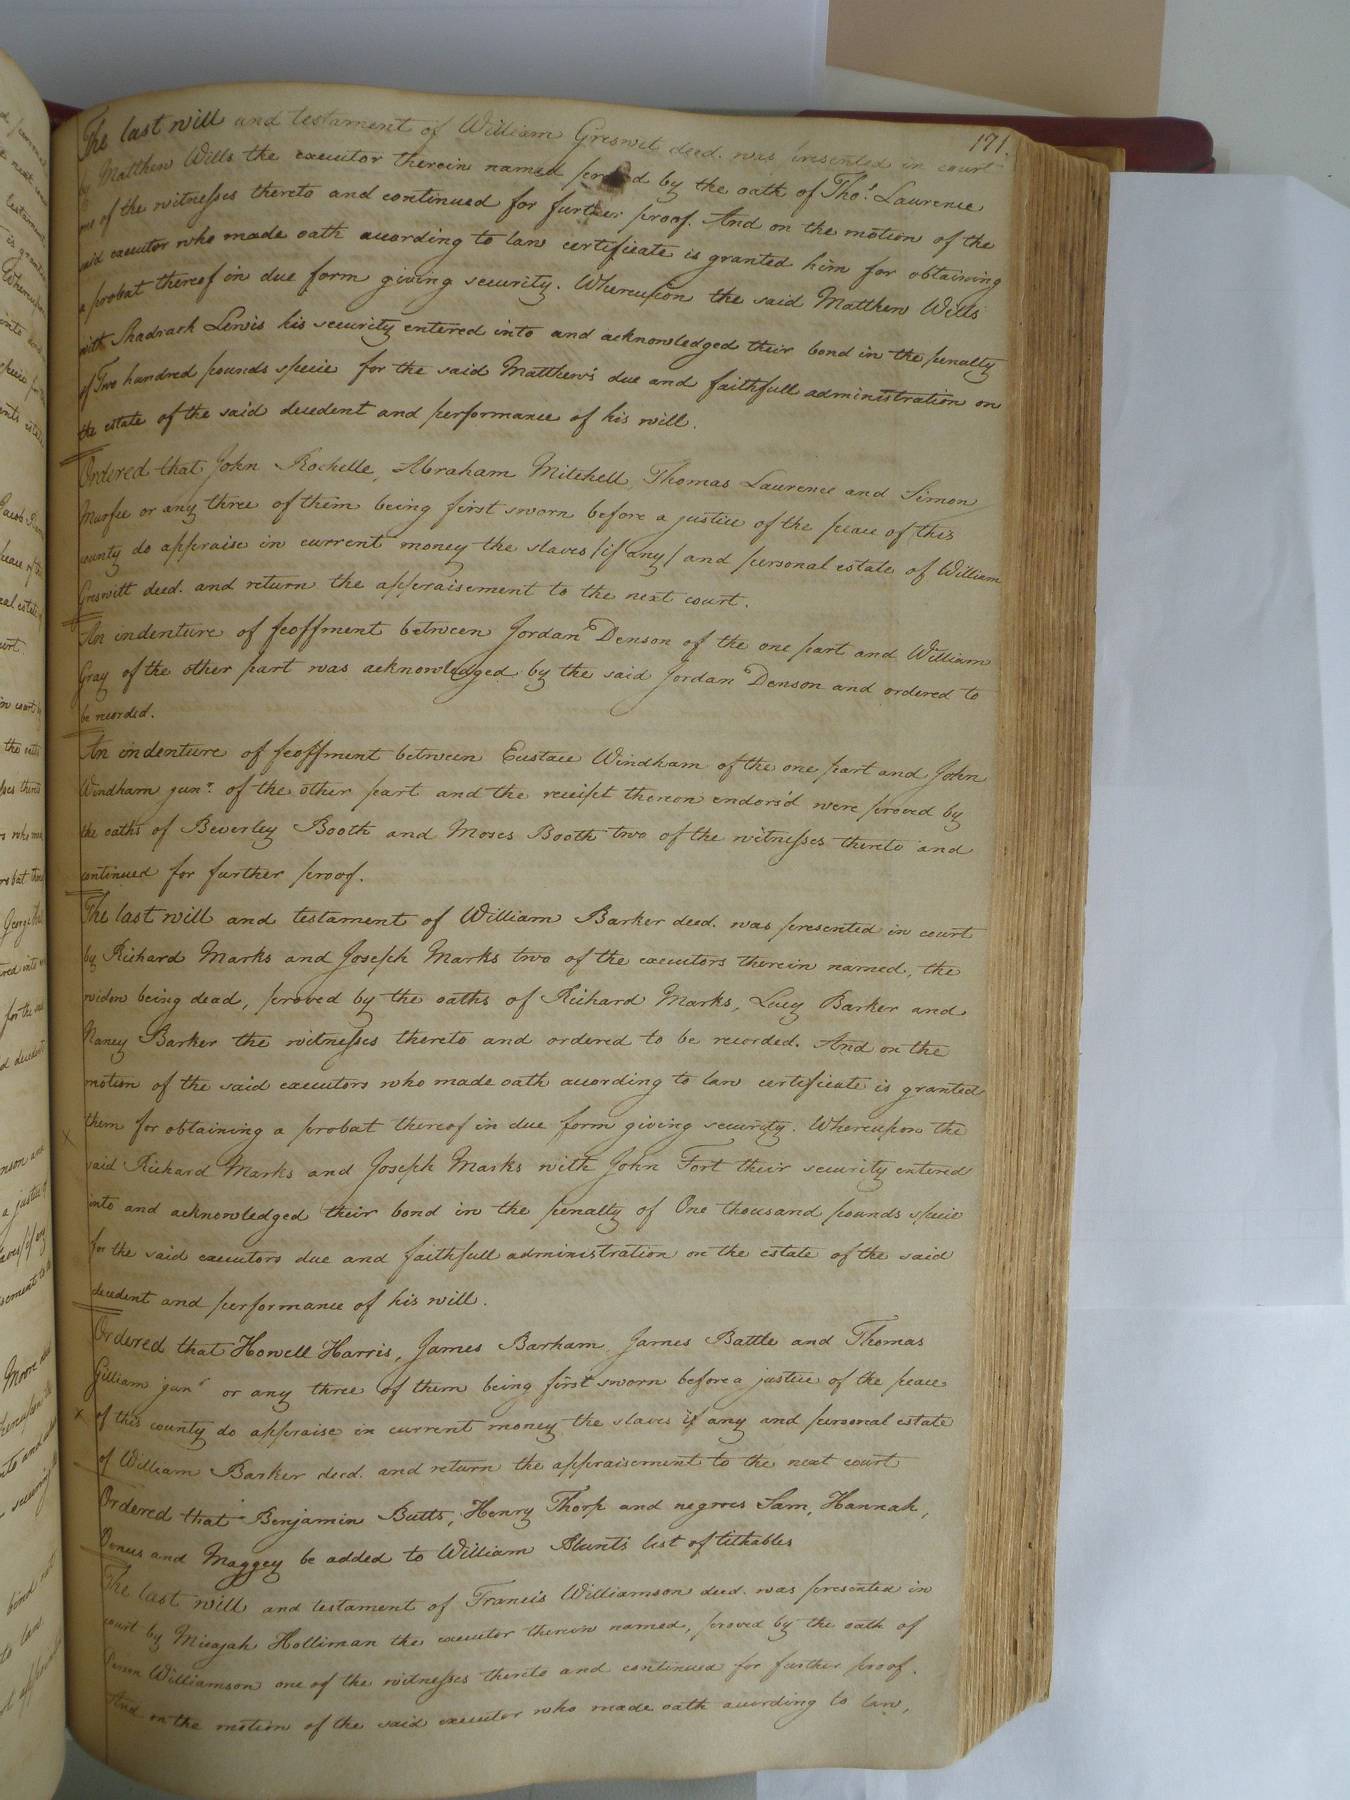 171.
The last will and testament of William Greswit deed. was presented in court
by Matthew Wills the executor therein named proved by the oath of Thos. Laurence
one of the witnesses thereto and continued for further proof. And on the motion of the
said executor who made oath according to law certificate is granted him for obtaining
a probat thereof in due form giving security. Whereupon the said Matthew Wills
with Shadrach Lewis his security entered into and acknowledged their bond in the penalty
of Two hundred pounds specie for the said Matthew's due and faithfull administration on
the estate of the said decedent and performance of his will.
Ordered that John Rochelle, Abraham Mitchell, Thomas Laurence and Simon
Murfee or any three of them being first sworn before a justice of the peace of this
county do appraise in current money the slaves /if any/ and personal estate of William
Greswitt deed. and return the appraisement to the next court.
An indenture of feoffment between Jordan Denson of the one part and William
Gray of the other part was acknowledged by the said Jordan Denson and ordered to
be recorded.
An indenture of feoffment between Eustace Windham of the one part and John
Windham junr. of the other part and the receipt thereon endors'd were proved by
the oaths of Beverley Booth and Moses Booth two of the witnesses thereto and
continued for further proof.
The last will and testament of William Barker deed. was presented in court
by Richard Marks and Joseph Marks two of the executors therein named, the
widow being dead, proved by the oaths of Richard Marks, Lucy Barker and
Nancy Barker the witnesses thereto and ordered to be recorded. And on the
motion of the said executors who made oath according to law certificate is granted
them for obtaining a probat thereof in due form giving security. Whereupon the
said Richard Marks and Joseph Marks with John Fort their security entered
into and acknowledged their bond in the penalty of One thousand pounds specie
for the said executors due and faithfull administration on the estate of the said
decedent and performance of his will.
Ordered that Howell Harris, James Barham, James Battle and Thomas
Gilliam junr or any three of them being first sworn before a justice of the peace
of this county do appraise in current money the slaves if any and personal estate
of William Barker deed. and return the appraisement to the next court
Ordered that Benjamin Butts, Henry Thorp and negroes Sam, Hannah,
Venus and Maggey be added to William Blunts list of tithables
The last will and testament of Francis Williamson deed. was presented in
court by Micajah Holliman the executor therein named, proved by the oath of
Williamson one of the witnesses thereto and continued for further proof.
And on the motion of the said executor who made oath according to law,